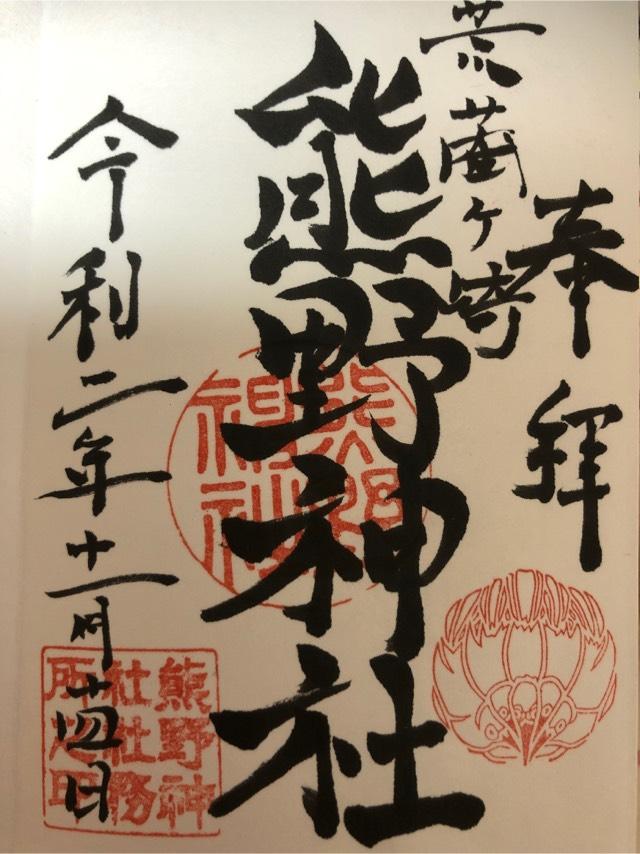 奉拝
荒藺ヶ崎
熊野神社
令和二年十一月十四日
熊野神社
熊野神
社社務
所之印